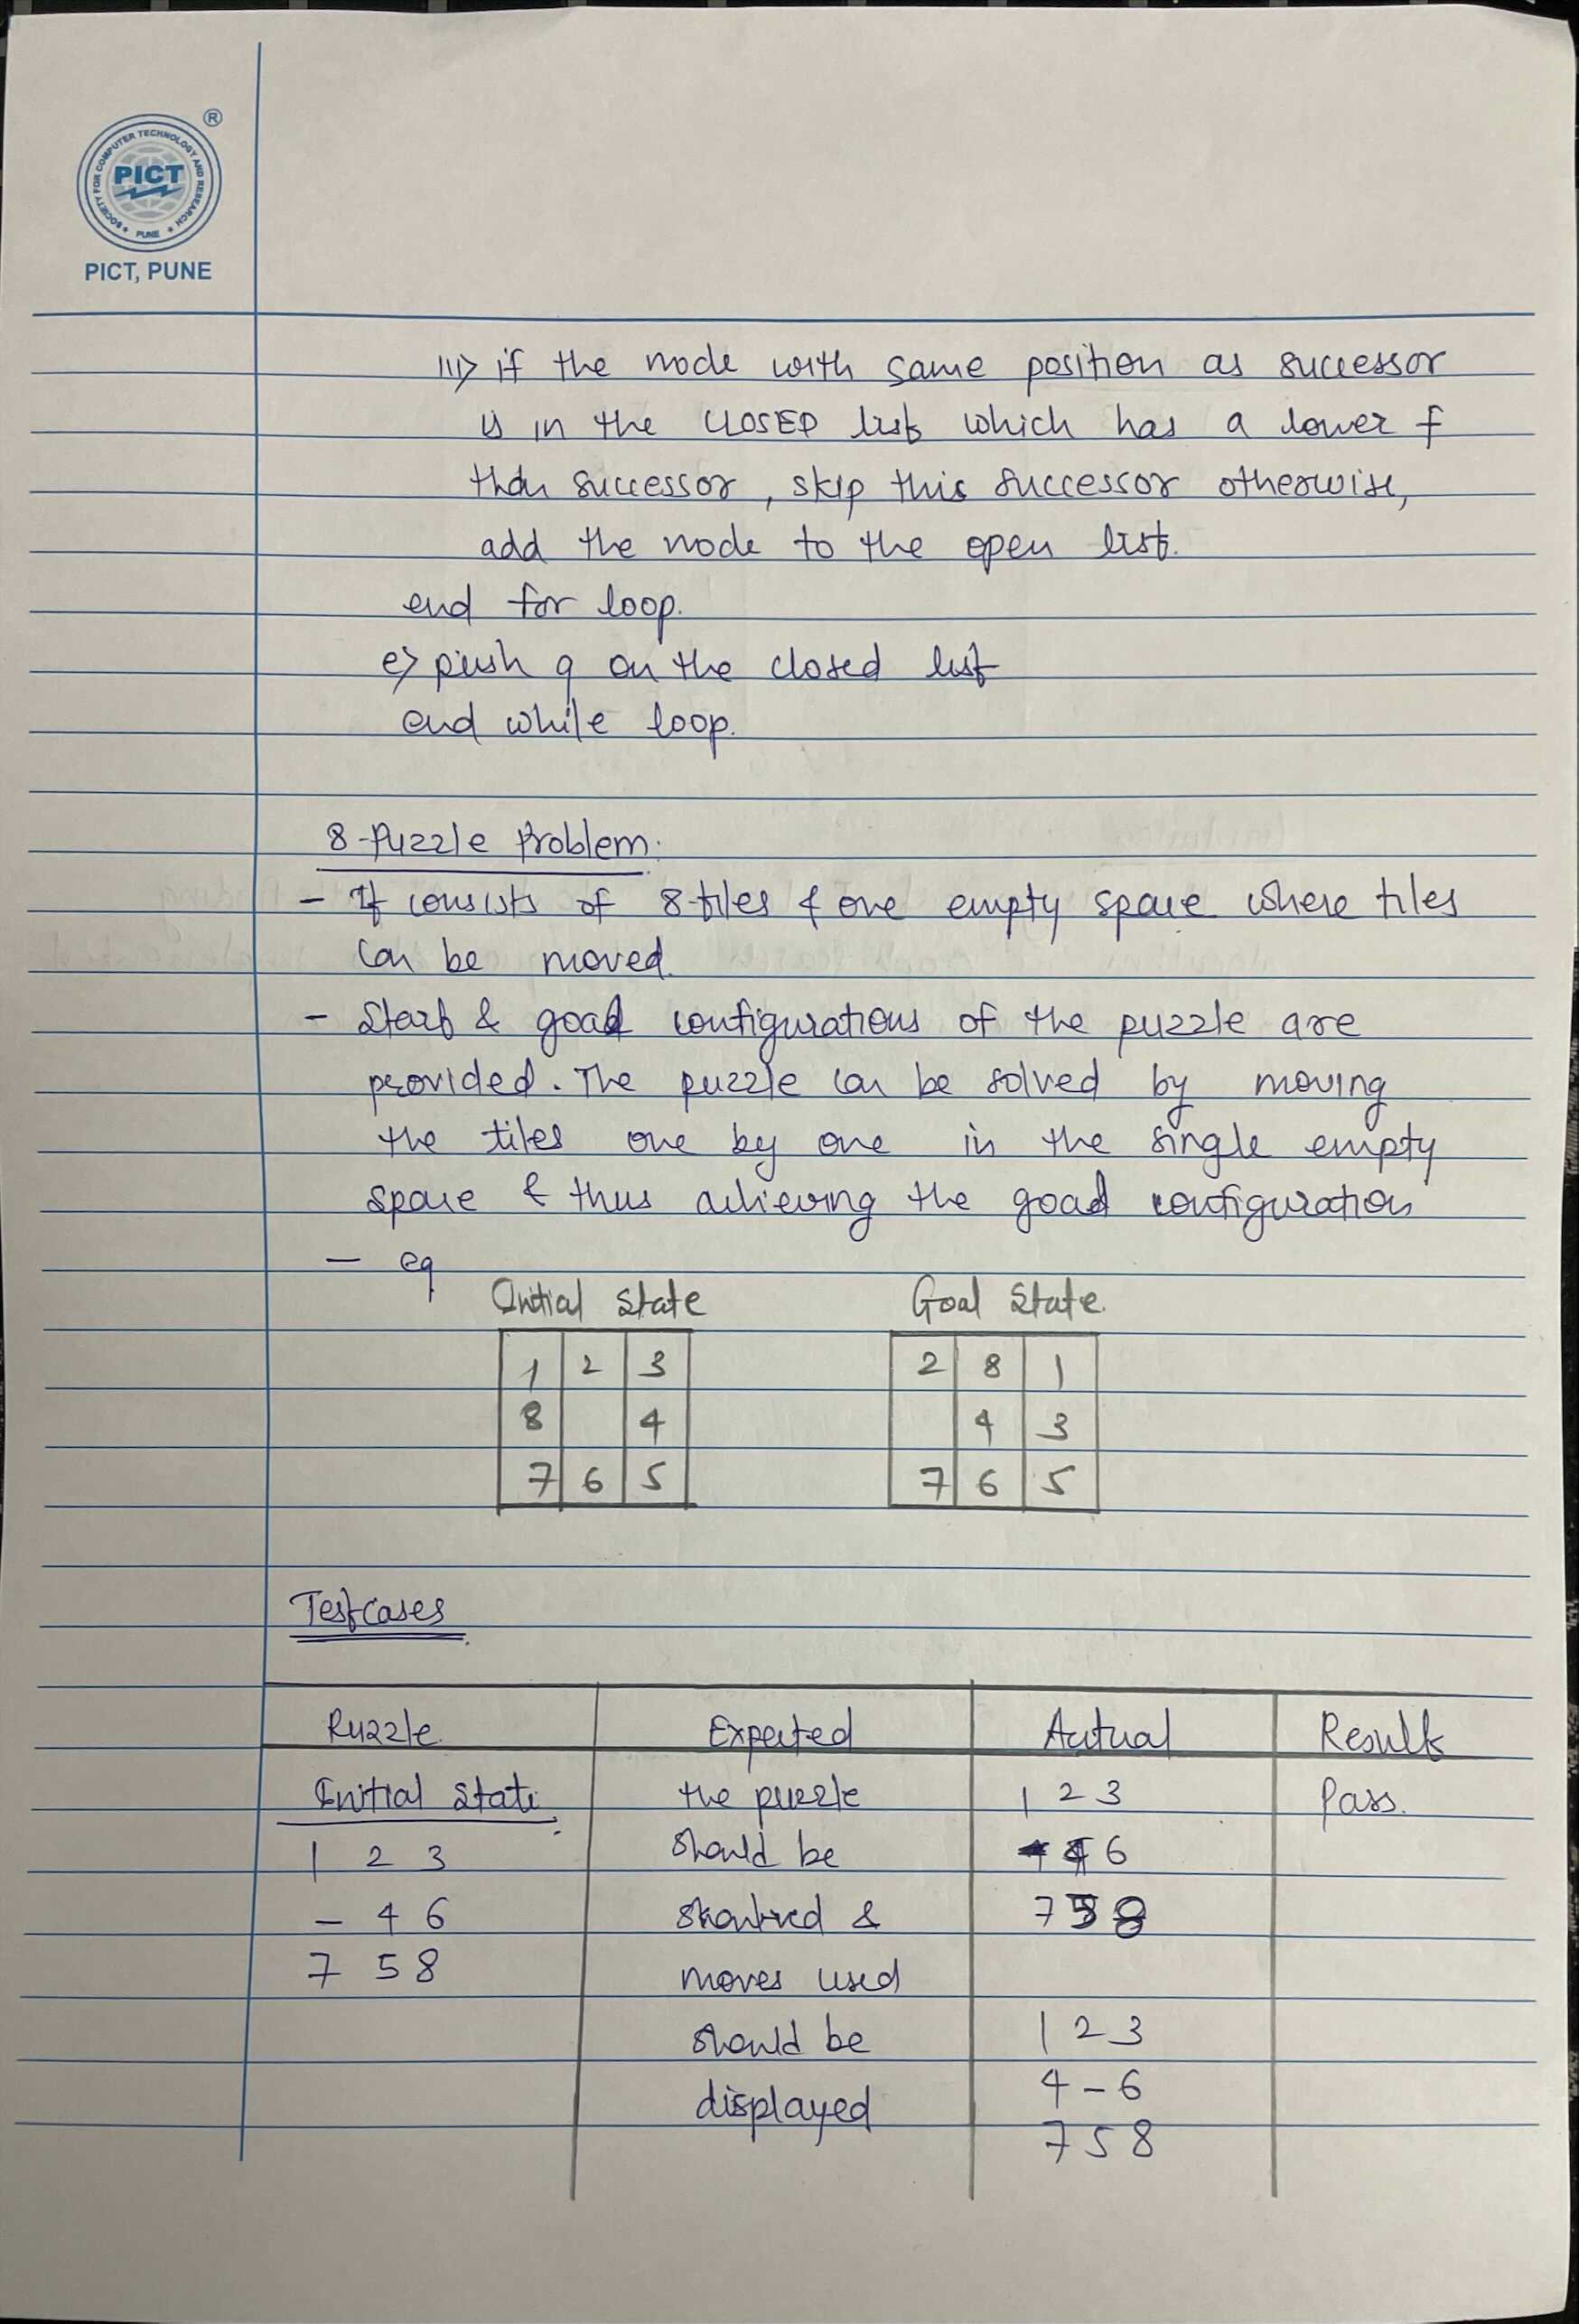 ®
SOCIETY FOR COMPUTER TECHNOLOGY AND RESEARCH
PICT
PUNE
PICT, PUNE
iii> if the node with same position as successor
is in the CLOSED list which has a lower f
than successor, skip this successor otherwise,
add the node to the open list.
end for loop.
e> push q on the closed list
end while loop.
8-Puzzle Problem:
- It consists of 8-tiles & one empty space where tiles
can be moved.
- Start & goal configurations of the puzzle are
provided. The puzzle can be solved by moving
the tiles one by one in the single empty
space & thus achieving the goal configuration
- eg
Initial State Goal State.
1 2 3 2 8 1
8 4 4 3
7 6 5 7 6 5
Testcases
Puzzle Expected Actual Result
Initial State. the puzzle 1 2 3 Pass.
1 2 3 should be 6
- 4 6 & 7 8
7 5 8 moves used
should be 1 2 3
displayed 4 - 6
7 5 8